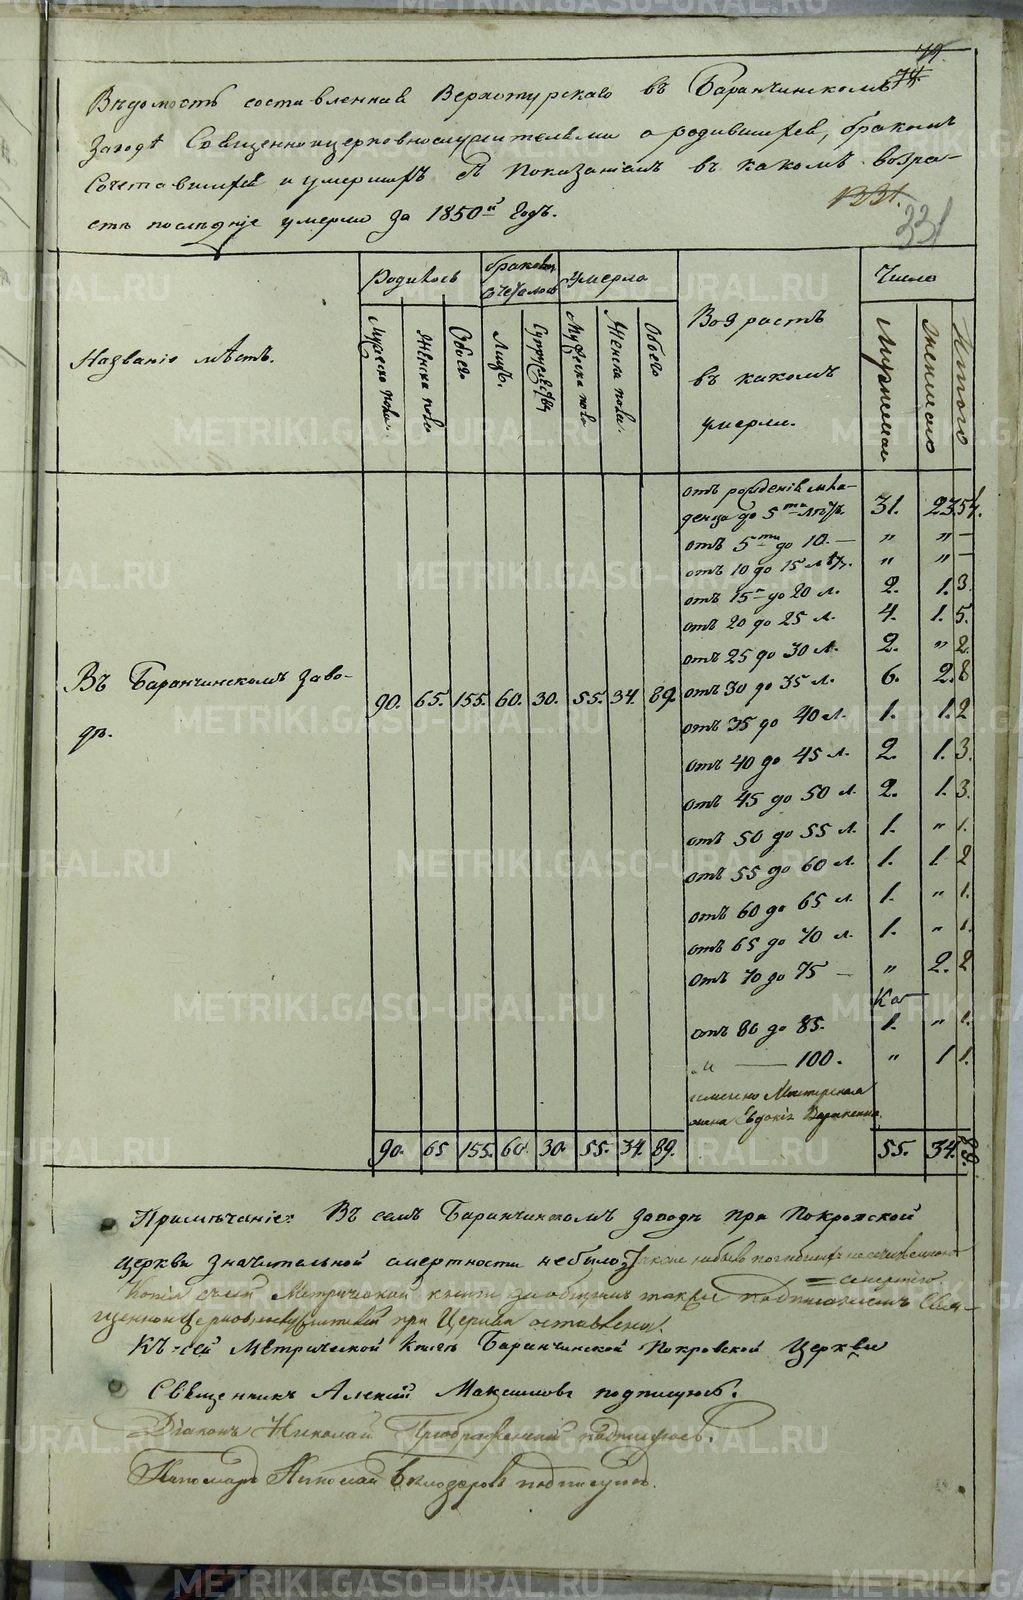 74.
Вѣдомость составленная Верхотурскаго въ Баранчинскомъ
Заводѣ Священноицерковнослужителями о родившихся, бракомъ
Сочетавшихся и умершихъ съ показаніемъ въ какомъ возра-
331.
стѣ послѣдніе умерли за 1850й Годъ.
331
Названіе мѣстъ.
Родилось
браковъ сочеталось
умерло
Возрастъ
въ какомъ
умерли.
Число
Мужеска пола.
Женска пола
Обоего
Лицъ.
Супружествъ
Мужеска пола
Женска пола.
Обоего
Мужескаго
Женскаго
Итого
отъ рожденія мла-
денца до 5ти лѣтъ. 31. 23. 54.
отъ 5ти до 10. — " " —
отъ 10 до 15 лѣтъ. " " —
отъ 15 до 20 л. 2. 1. 3.
отъ 20 до 25 л. 4. 1. 5.
отъ 25 до 30 л. 2. " 2.
Въ Баранчинскомъ заво-
дѣ. 90. 65. 155. 60. 30. 55. 34. 89.
отъ 30 до 35 л. 6. 2. 8
отъ 35 до 40 л. 1. 1. 2
отъ 40 до 45 л. 2. 1. 3.
отъ 45 до 50 л. 2. 1. 3.
отъ 50 до 55 л. 1. " 1.
отъ 55 до 60 л. 1. 1 2
отъ 60 до 65 л. 1. " 1.
отъ 65 до 70 л. 1. " 1.
отъ 70 до 75 — " 2. 2
отъ 80 до 85. 1. " 1.
" — 100. " 1 1.
жена Евдокія
90. 65 155. 60. 30. 55. 34. 89. 55. 34. 89.
Примѣчаніе: Въ семъ Баранчинскомъ заводѣ при Покровской
церкви значительной смертности небыло,
смертію
Копія съ сей Метрической книги за общимъ таковымъ подписаніемъ Свя-
щенноицерковнослужителей при Церкви оставлена.
Къ сей Метрической книгѣ Баранчинской Покровской Церкви
Священникъ Алексій Максимовъ подписуюсь.
Діаконъ Николай Преображенскій подписуюсь.
Пономарь Николай подписуюсь.
METRIKI.GASO-URAL.RU